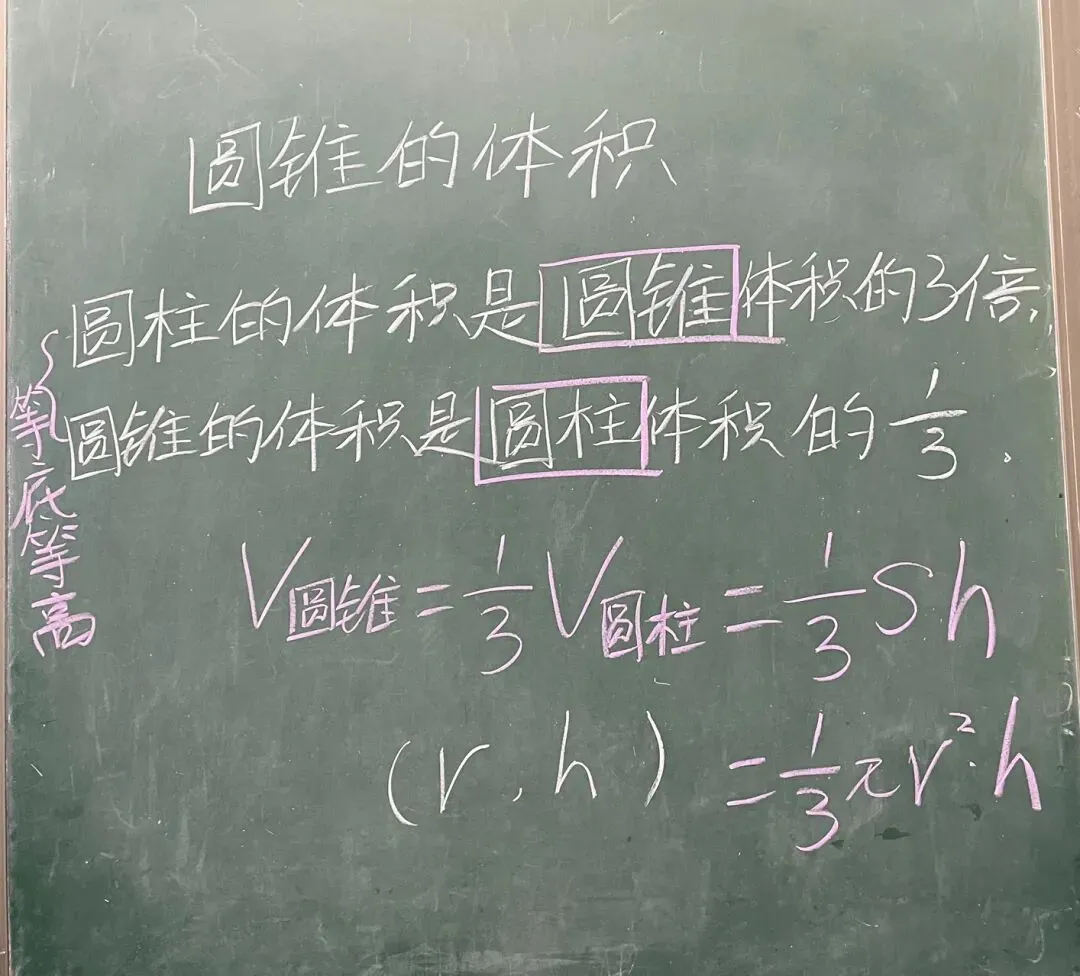 圆锥的体积
圆柱的体积是圆锥体积的3倍;
等底等高
圆锥的体积是圆柱体积的1/3.
V圆锥=1/3V圆柱=1/3Sh
(r,h)=1/3πr²·h